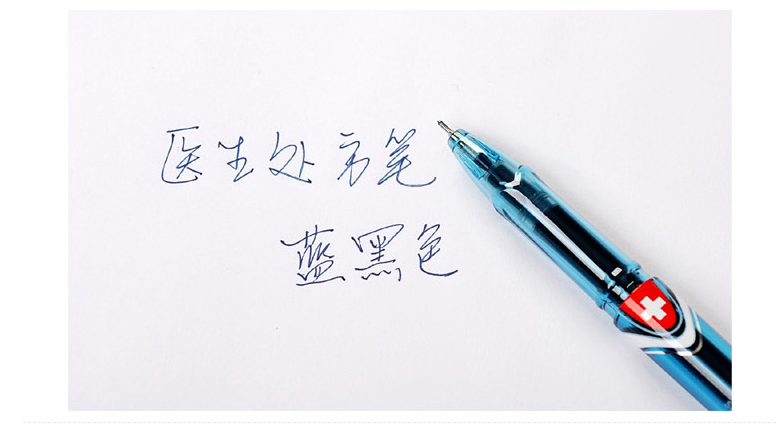 医生处方笔
蓝黑色